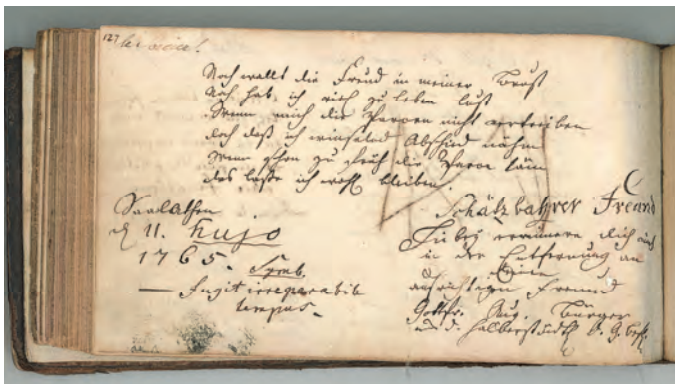 127
Noch wallt die Freud in meiner Brust
Noch hab ich recht zu leben Lust
Wenn mich die Parcen nicht vertreiben
doch daß ich winselnd Abschied nähm
Wenn schon zu früh die Parce käm
das laße ich wohl bleiben.
Saalathen
d 11. hujo
1765.
Symb.
— fugit irreparabile
tempus.
Schätzbahrer Freund
erinnere dich auch
in der Entfernung an
deinen
aufrichtigen Freund
Gottfr. Aug. Bürger
d. Halberstädt.